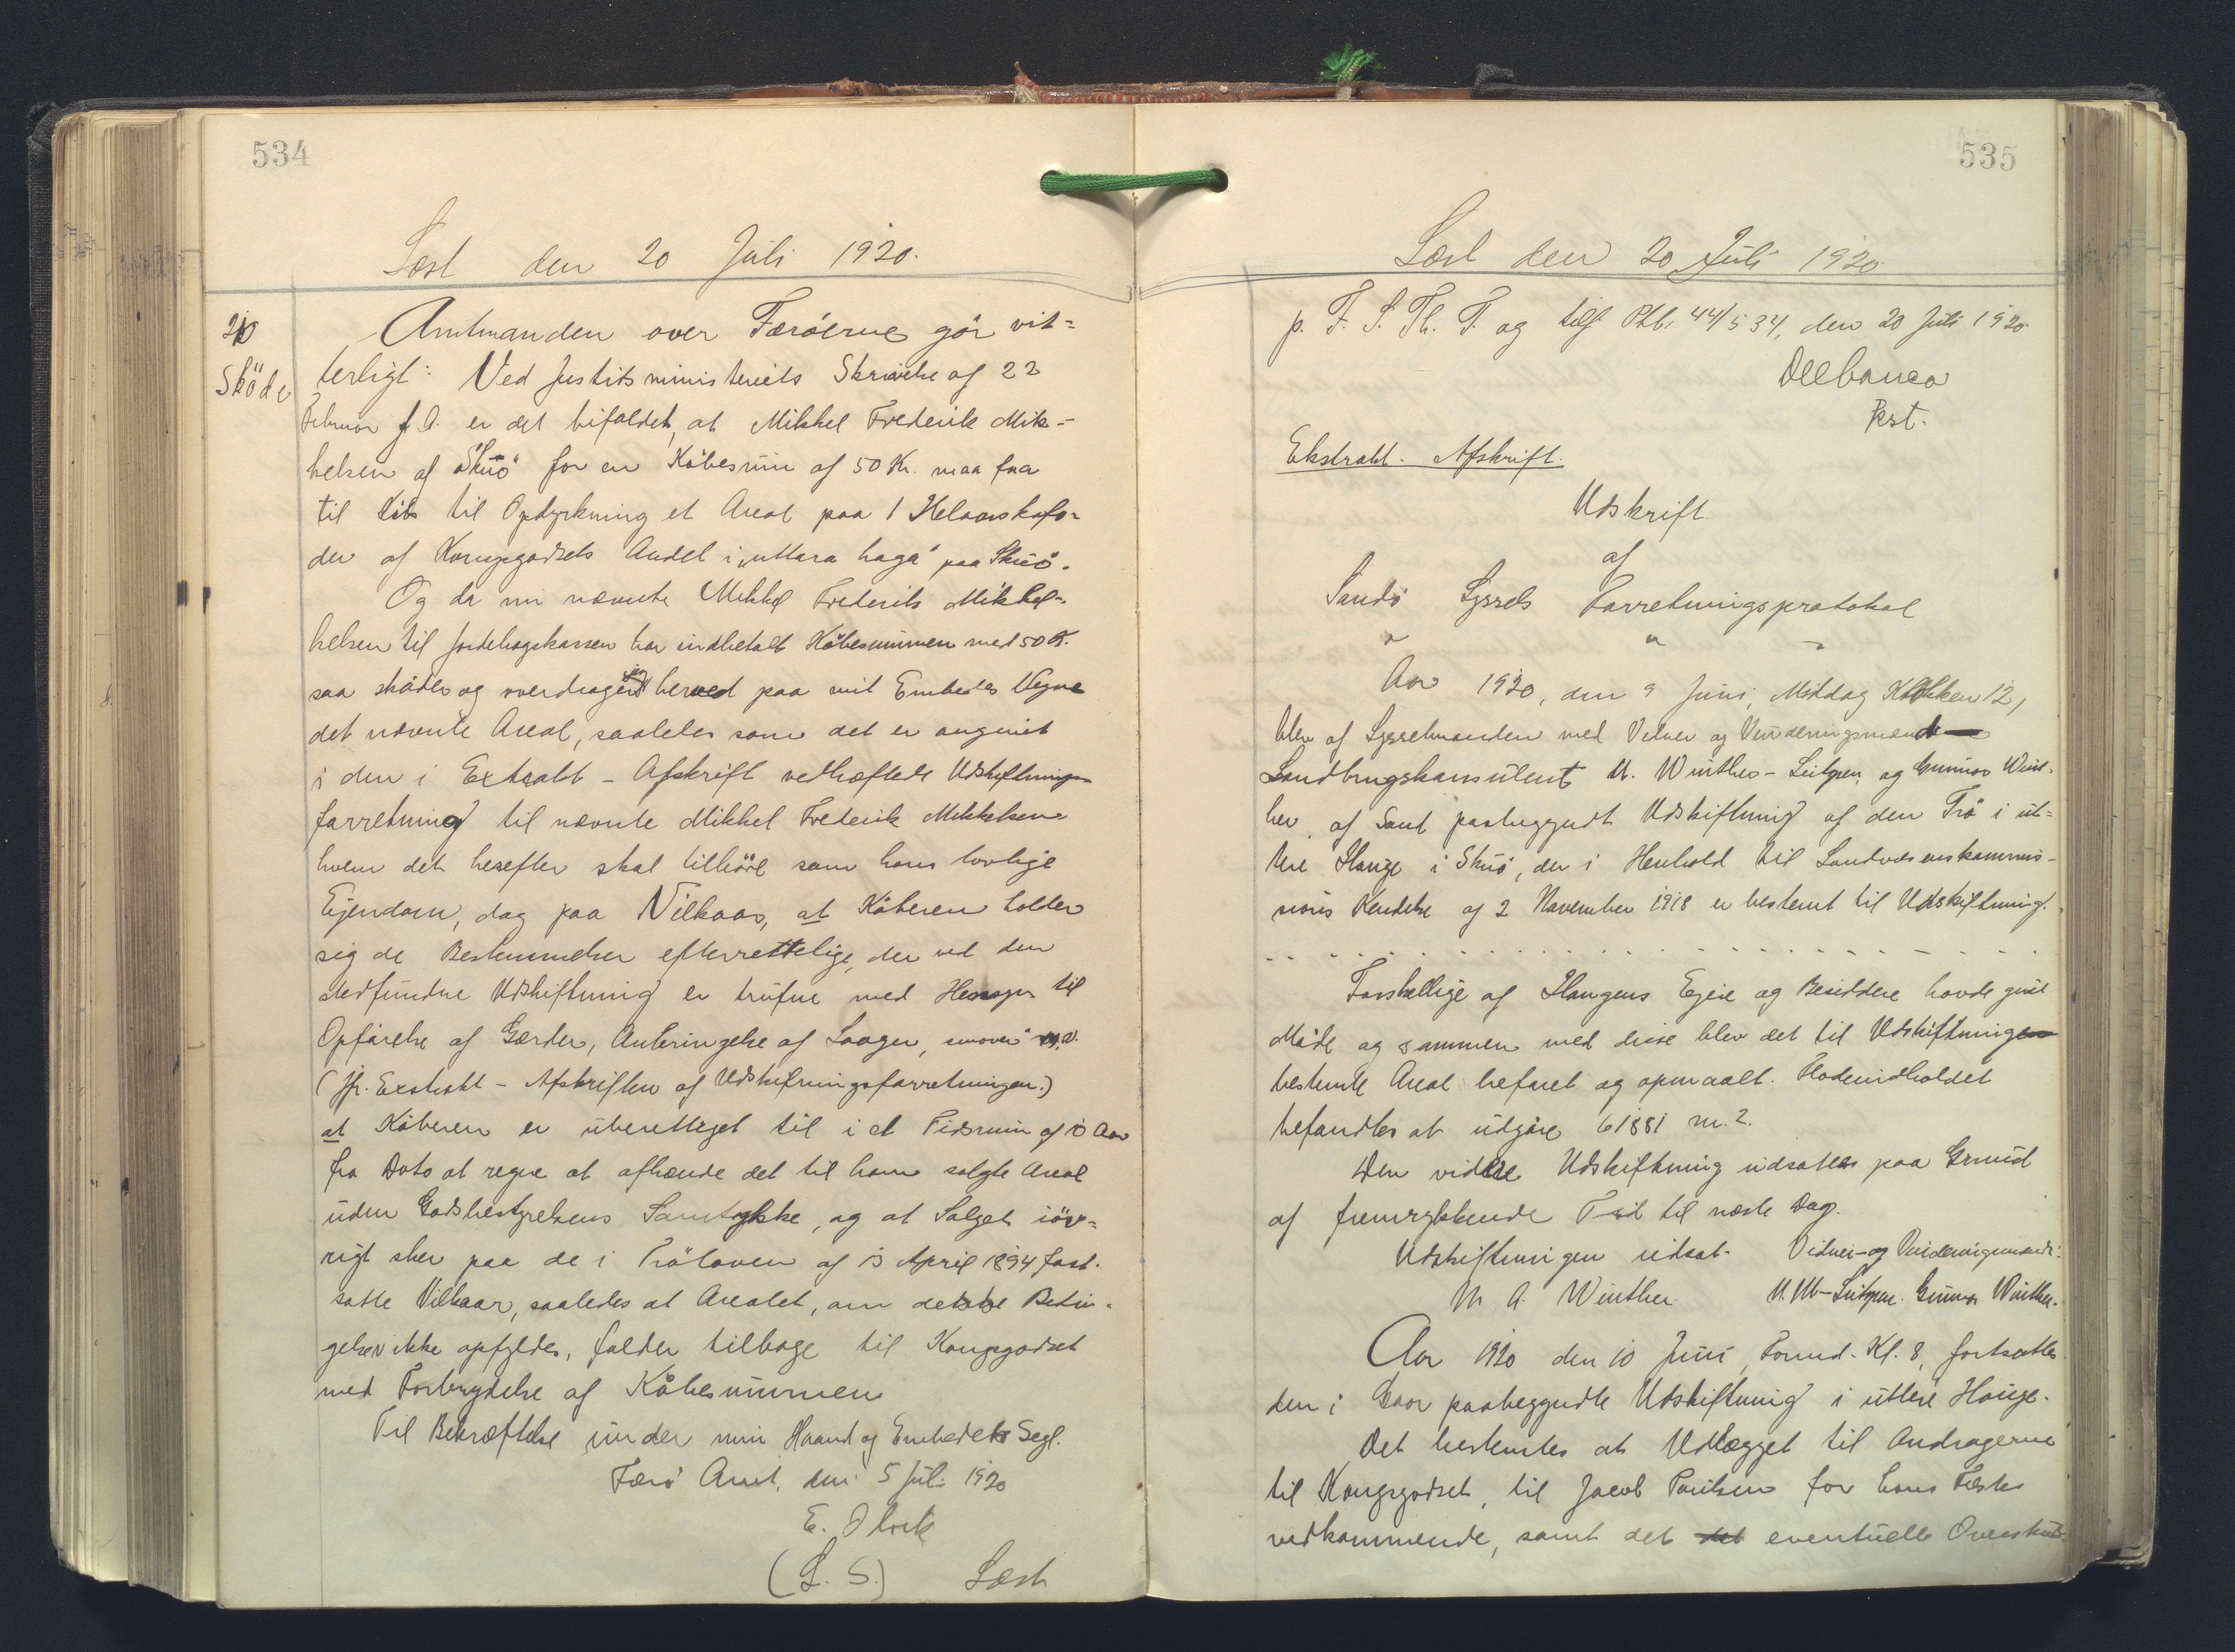 534
Læst den 20 Juli 1920.
20
Sköde
Amtmanden over Færöerne gör vit=
terligt: Ved Justitsministeriets Skrivelse af 22
Februar f.A. er det bifaldet, at Mikkel Frederik Mik-
kelsen af Skuö for en Köbesum af 50 Kr. maa faa
til Köbs til Opdyrkning et Areal paa 1 Helaarskofo-
der af Kongsgodsets Andel i "uttara haga" paa Skuö.
Og da nu nævnte Mikkel Frederik Mikkel-
kelsen til Jordebogskassen har indbetalt Köbesummen med 50 K.
saa sköder og overdrager jeg herved paa mit Embedes Vegne
det nævnte Areal, saaledes som det er angivet
i den i Extrakt-Afskrift vedhæftede Udskiftnings
forretning til nævnte Mikkel Frederik Mikkelsen
hvem det herefter skal tilhöre som hans lovlige
Ejendom, dog paa Vilkaar, at Köberen holder
sig de Bestemmelser efterrettelige, der ved den
stedfundne Udskiftning er trufne med Hensyn til
Opförelse af Gærder, Anbringelse af Laager, m.v.
(jfr. Exstrakt-Afskriften af Udskiftningsforretningen.)
at Köberen er uberettiget til i et Tidsrum af 10 Aar
fra Dato at regne at afhænde det til ham solgte Areal
uden Godsbestyrelsens Samtykke, og at Salget iöv=
rigt sker paa de i Tröloven af 13 April 1894 fast-
satte Vilkaar, saaledes at Arealet, om Betin-
gelsen ikke opfyldes, falder tilbage til Kongsgodset
med Fortrydelse af Köbesummen
Til Bekræftelse under min Haand og Embedets Segl.
Færö Amt, den 5 Juli 1920
E.
(L. S.) Læst
535
Læst den 20 Juli 1920
p. F. S. Th. T. og tilf. Ptb. 44/534, den 20 Juli 1920.
Delbanco
kst.
Ekstrakt-Afskrift.
Udskrift
af
Sandö Syssels Forretningsprotokol
Aar 1920, den 9 Juni, Middag Klokken 12,
blev af Sysselmanden med Vidner og Vurderingsmænd
Landbrugskonsulent U. Winther-Lützen og Gunnar Wint-
her, af Sand paabegyndt Udskiftning af den Trö i üt-
tere Hauge i Skuö, der i Henhold til Landvæsenskommis-
sions Kendelse af 2 November 1918 er bestemt til Udskiftning.
Forskellige af Haugens Ejere og Besiddere havde givet
Möde og sammen med disse blev det til Udskiftningen
bestemte Areal befaret og opmaalt. Fladeindholdet
befandtes at udgöre 61881 m.2.
Den videre Udskiftning udsattes paa Grund
af fremrykkende Tid til næste Dag.
Udskiftningen udsat. Vidner- og Vurderingsmænd:
M. A. Winther. U. W-Lützen. Gunnar Winther.
Aar 1920 den 10 Juni, Formd. Kl. 8, fortsattes
den i Gaar paabegyndte Udskiftning i uttere Hauge.
Det bestemtes at Udlægget til Andragerne
til Kongsgodset, til Jacob Poulsen for hans Fæstes
vedkommende, samt det det eventuelle Overskud